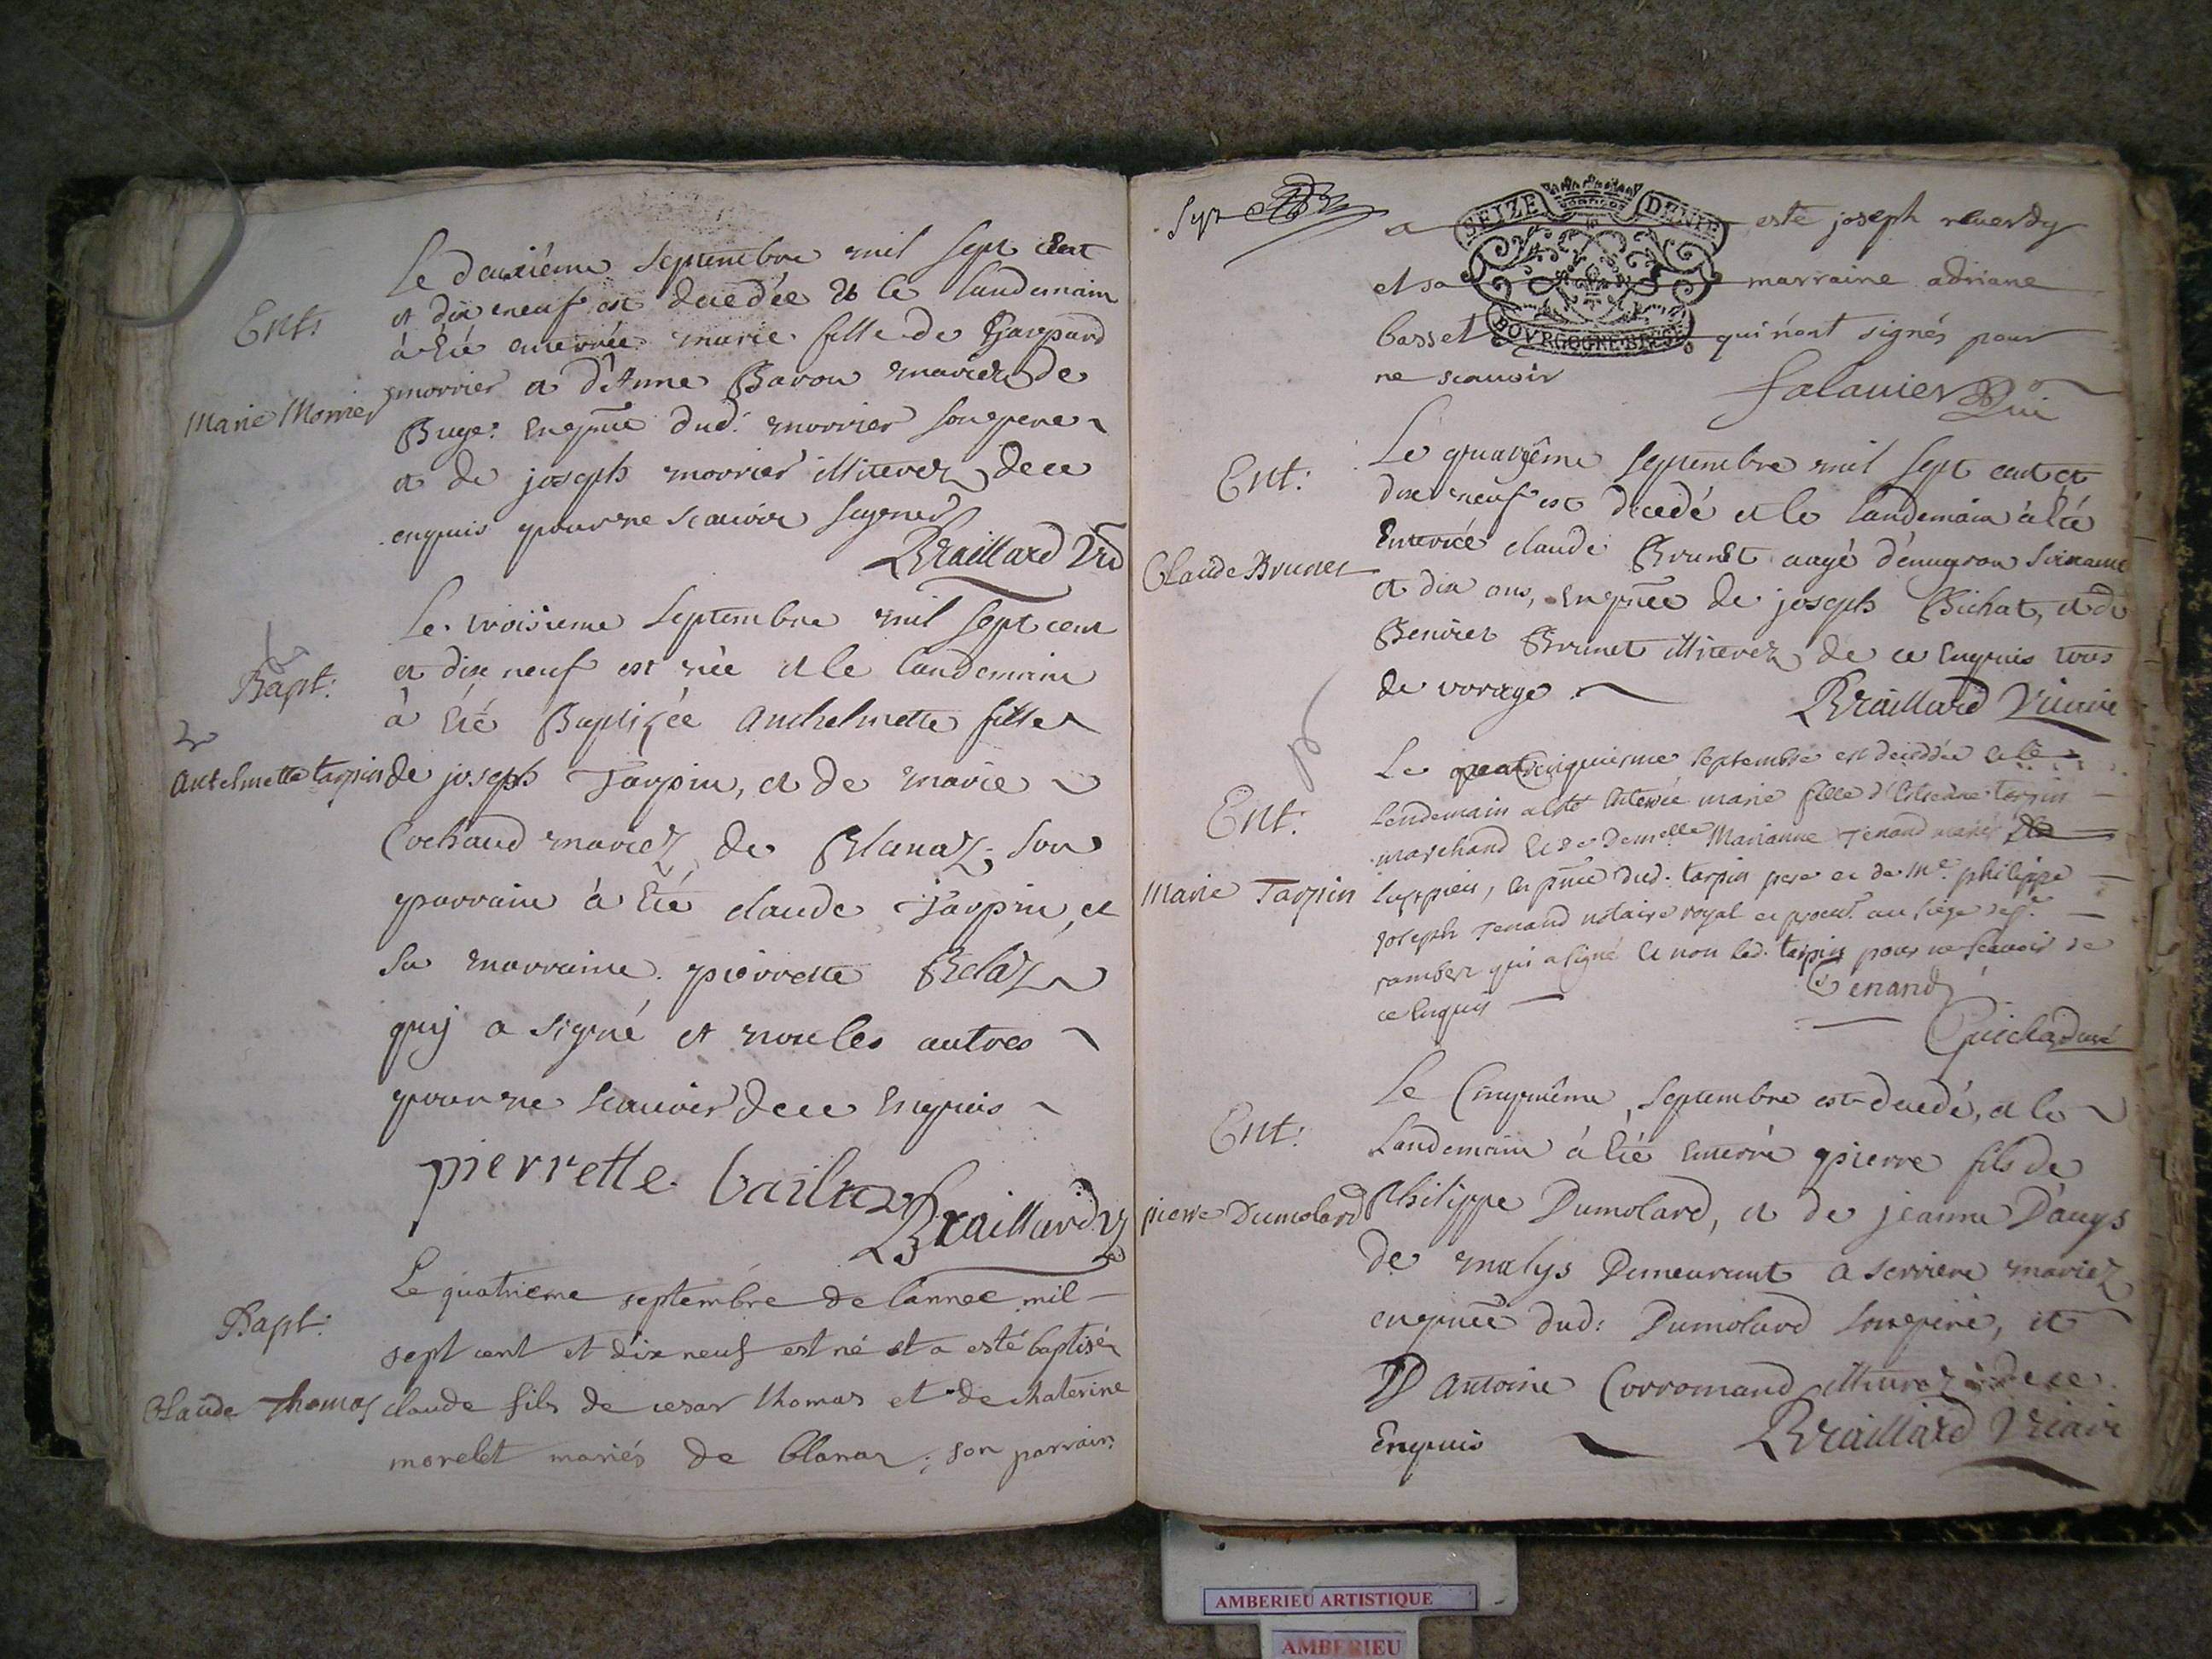 Ent:
Marie Morrier
Le deuxiéme Septembre mil Sept Cent
et dix neuf est decedée et le landemain
à été enterrée marie fille de Gaspard
morrier et d'Anne Baron mariez de
Buge: en pnce dud. morrier son pere
et de joseph morrier illiterez de ce
enquis pour ne scauoir signer
Braillard Vic
Bapt:
Antelmette tarpin
Le troisieme Septembre mil Sept cent
et dix neuf est née et le landemain
à été Baptizée Anthelmette fille
de joseph Tarpin, et de marie
Cochaud mariez de Blanaz; son
parrain à été claude Tarpin, et
sa marraine pierrette Belaz
quj a signé et non les autres
pour ne scauoir de ce enquis
pierrette
Braillard V
Bapt:
Claude Thomas
Le quatrieme septembre de lannee mil
sept cent et dix neuf est né et a esté baptisé
claude fils de cesar thomas et de chaterine
morelet mariés de blanaz; son parrain
Sept
a esté joseph reuerdy
et sa marraine adriane
basset qui n'ont signés pour
ne scauoir
SEIZE DENIE
BOVRGOGNE·BRES
falauier
Ent:
Claude Brunet
Le quatriême Septembre mil Sept cent et
dix neuf est decedé et le landemain à été
Enterré claude Brunet aagé d'enuiron soixante
et dix ans, en pnce de joseph Bichat, et de
Benoiet Brunet illiterez de ce enquis tous
de vorage
Braillard Vicaire
Ent:
Marie Tarpin
Le cinquiesme septembre est decedée et le
lendemain a esté enterrée marie fille d' tarpin
marchand et de demelle Marianne Tenand mariés
, en pnce dud. tarpin pere et de Me philippe
joseph Tenand notaire royal et procur au siege de St
rambert qui a signé et non led. tarpin pour ne scauoir de
ce enquis
Tenand
Guichard curé
Ent:
pierre Dumolard
Le Cinquiême Septembre est decedé, et le
Landemain à été enterré pierre fils de
Philippe Dumolard, et de jeanne Daugs
de malys Demeurant a serriere mariez
en pnce dud: Dumolard son pere, et
D'Antoine Corromand illiterez de ce
Enquis
Braillard Vicaire
AMBERIEU ARTISTIQUE
AMBERIEU